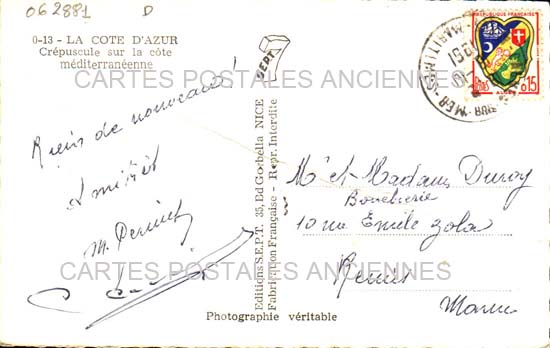 062881 D
0-13 - LA COTE D'AZUR
Crépuscule sur la côte
méditerranéenne
Rien de nouveau !
Amitiés
M.
SEPT
7
Editions S.E.P.T. 35, Ed Gorbella NICE
Fabrication Française - Repr. Interdite
REPUBLIQUE FRANÇAISE
0,15
ALGER
SUR-MER
MARITIMES
1961
Mr et Madame Duroy
Boucherie
10 rue Emile Zola
Reims
Marne
Photographie véritable
CARTES POSTALES ANCIENNES
CARTES POSTALES ANCIENNES